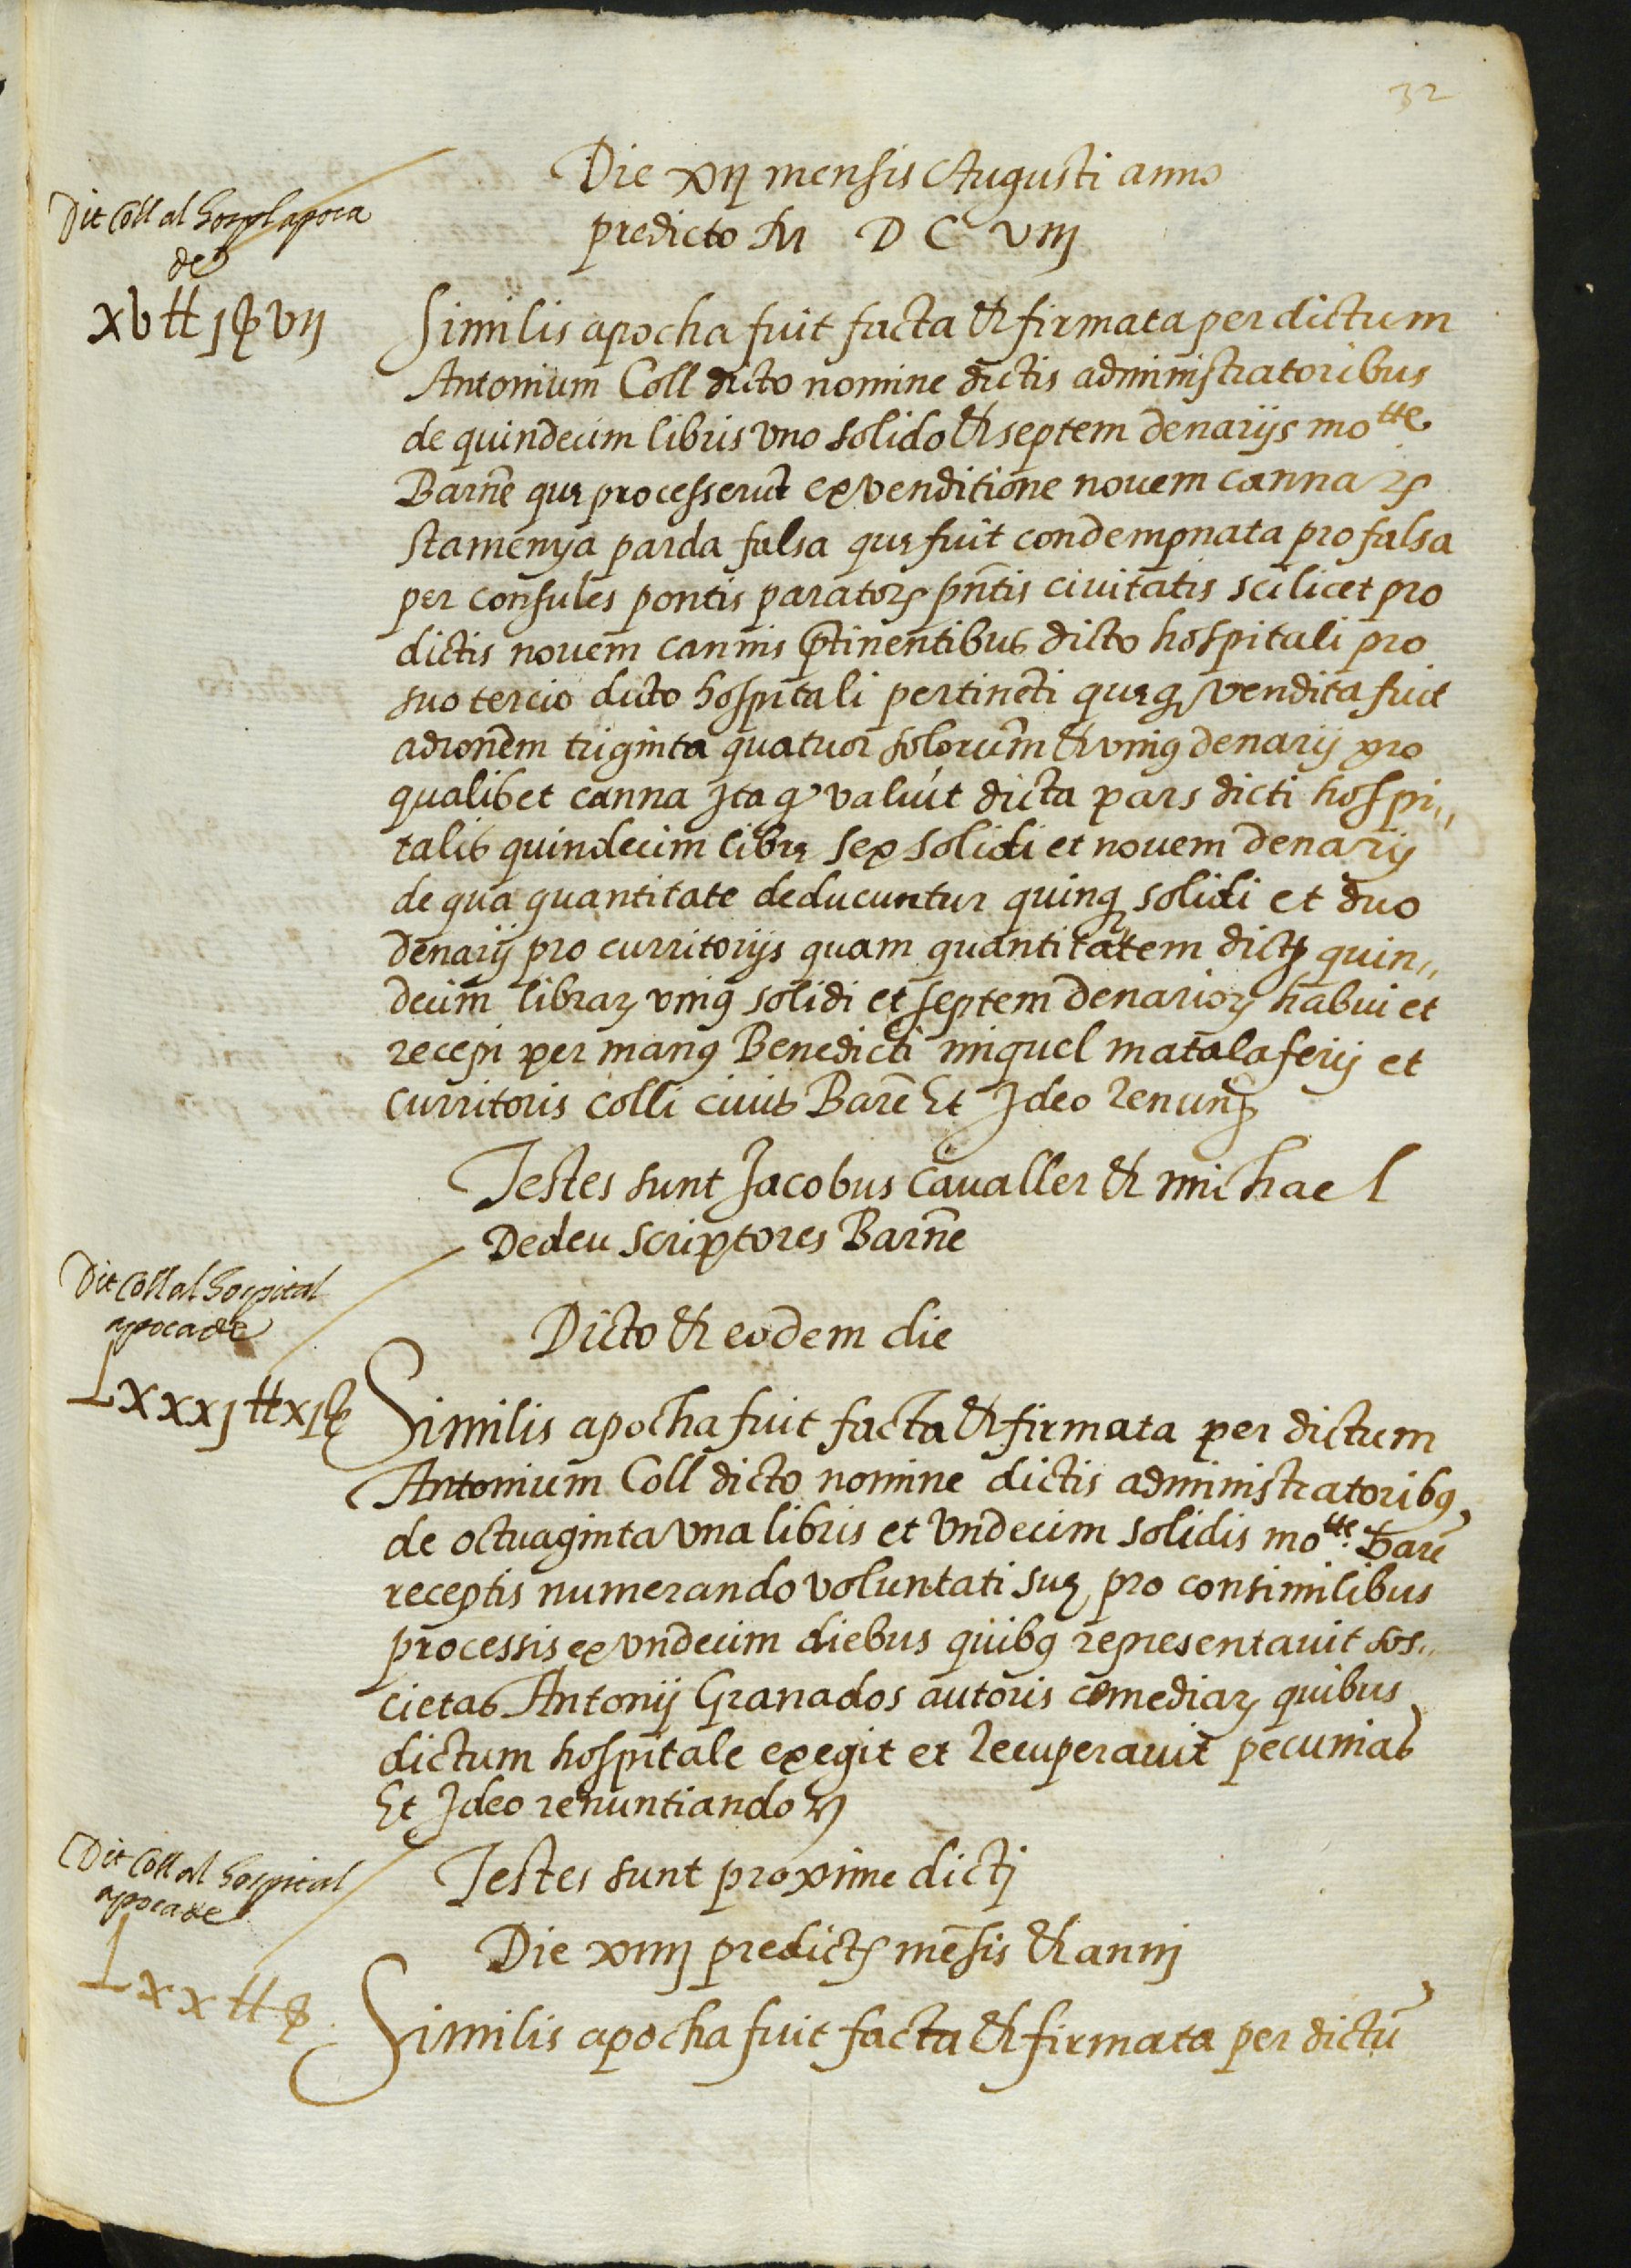 32
Die xij mensis Augusti anno
predicto M D C viij
Dit Coll al hospl apoca
de
xv ℔ j ß vij
Similis apocha fuit facta & firmata per dictum
Antonium Coll dicto nomine dictis administratoribus
de quindecim libris uno solido & septem denarijs mo^tte
Barne que processerut ex venditione novem cannarꝝ
stamenya parda falsa que fuit condempnata pro falsa
per consules pontis paratorꝝ pntis civitatis scilicet pro
dictis novem cannis ptinentibus dicto hospitali pro
suo tercio dicto hospitali pertineti queq vendita fuit
adronem triginta quatuor solorum & unius denarij pro
qualibet canna Ita q valuit dicta pars dicti hospi,,
talis quindecim libre sex solidi et novem denarij
de qua quantitate deducuntur quinqꝫ solidi et duo
denarij pro curritorijs quam quantitatem dictꝝ quin,,
decim librarꝝ unius solidi et septem denariorꝝ habui et
recepi per manus Benedicti miquel matalaferij et
curritoris colli civis Barne Et Ideo renun
Testes sunt Jacobus Cavaller & michael
Dedeu scriptores Barne
Dit Coll al hospital
apoca de
Lxxxj ℔ xj ß
Dicto & eodem die
Similis apocha fuit facta & firmata per dictum
Antonium Coll dicto nomine dictis administratoribus
de octuaginta una libris et undecim solidis mo^tte Bare
receptis numerando voluntati sue pro consimilibus
processis ex undecim diebus quibus representavit sos,,
cietas Antonij Granados autoris comediarꝝ quibus
dictum hospitale exegit et recuperavit pecunias
Et Ideo renuntiando
Testes sunt proxime dictj
Dit Coll al hospital
apoca de
Lxx ℔ ß
Die xiiij predictꝝ mesis & annj
Similis apocha fuit facta & firmata per dictu